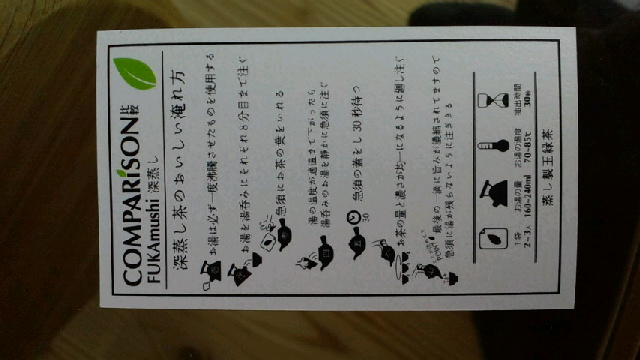 COMPARiSON 比較
FUKAmushi 深蒸し
深蒸し茶のおいしい淹れ方
お湯は必ず一度沸騰させたものを使用する
お湯を湯呑みにそれぞれ8分目まで注ぐ
急須にお茶の葉をいれる
湯の温度が適温まで下がったら
湯呑みのお湯を静かに急須に注ぐ
急須の蓋をし30秒待つ
30
お茶の量と濃さが均一になるように廻し注ぐ
最後の一滴に旨みが濃縮されてますので
急須に湯が残らないように注ぎきる
1袋
2~3人
お湯の量
160~240ml
お湯の温度
70~85℃
抽出時間
30秒
蒸し製玉緑茶